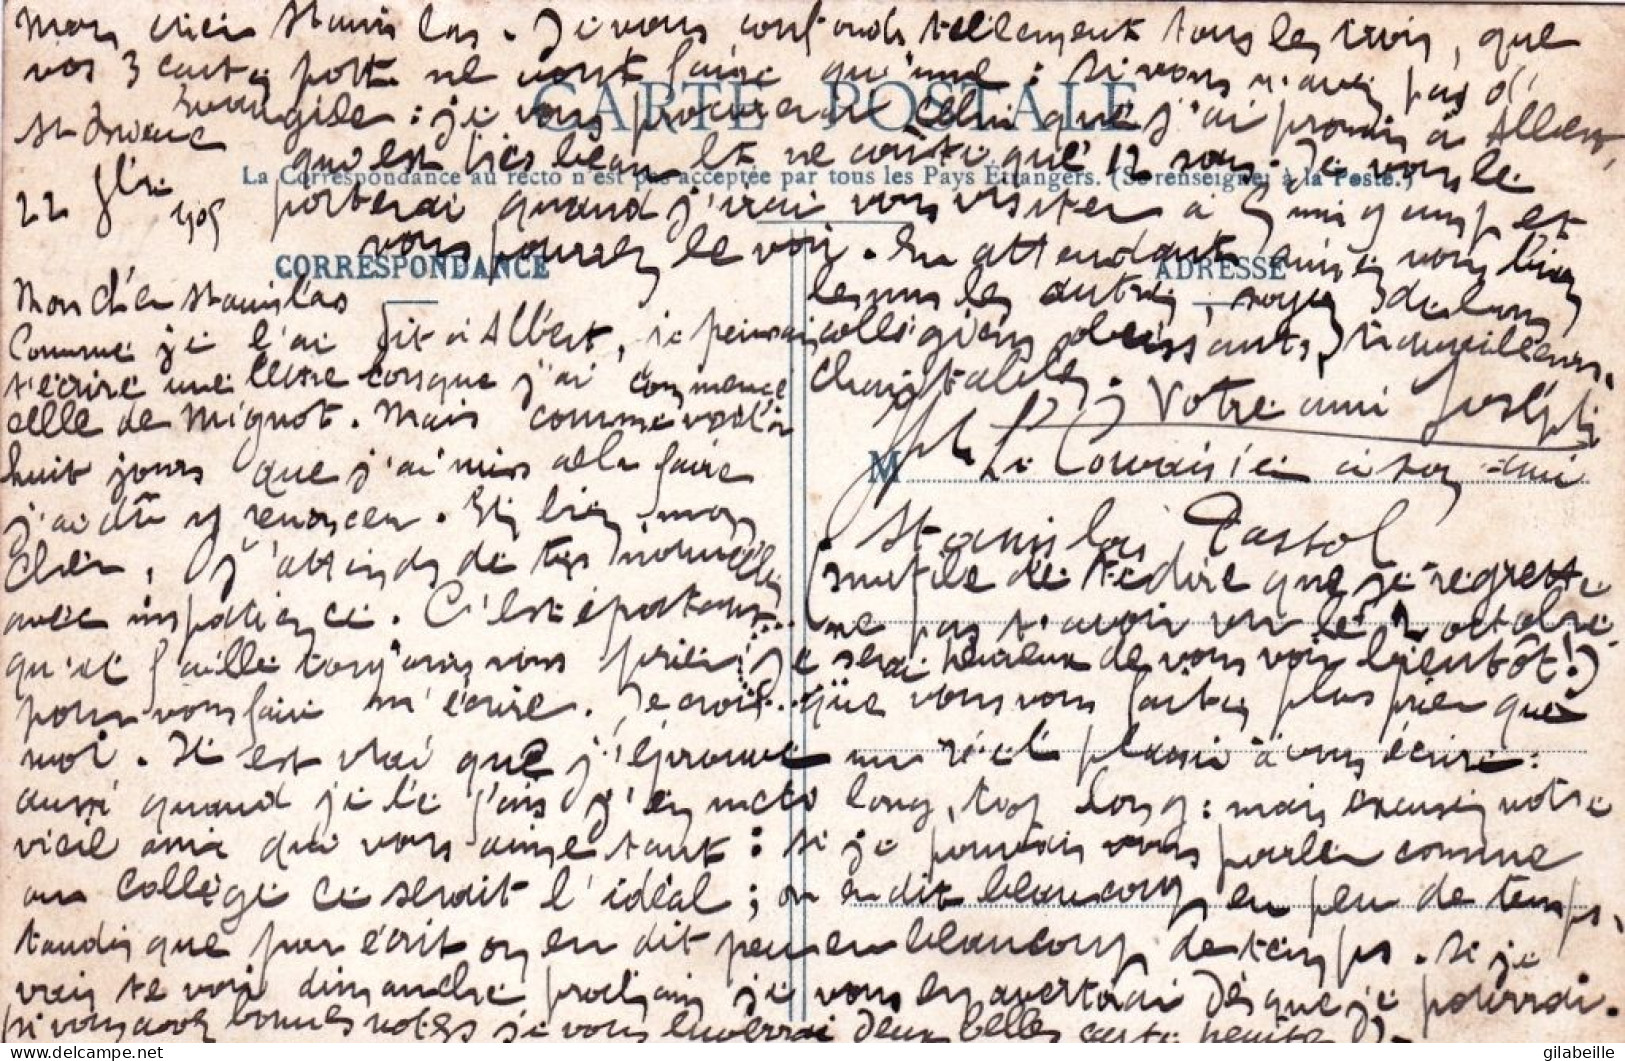 Mon cher Stanislas. Je vous confonds tellement tous les trois, que
vos 3 cartes post. ne vont faire qu'une : si vous n'avez pas d'
évangile : je vous procurerai celui que j'ai promis à Albert,
St Brieuc
qui est très beau et ne coûte que 12 sous. Je vous le
22 1905
porterai quand j'irai vous visiter à Guingamp et
vous pourrez le voir. En attendant aimez vous bien
les uns les autres, soyez de bons
collégiens obéissants, travailleurs,
charitables.
Votre ami Joseph
CARTE POSTALE
La Correspondance au recto n'est pas acceptée par tous les Pays Étrangers. (Se renseigner à la Poste.)
CORRESPONDANCE
ADRESSE
Mon cher Stanislas
Comme je l'ai dit à Albert, je pensais
t'écrire une lettre lorsque j'ai commencé
celle de Mignot. Mais comme voilà
huit jours que j'ai mis à la faire
j'ai dû y renoncer. Eh bien mon
cher, j'attends de tes nouvelles
avec impatience. C'est épatant
qu'il faille toujours vous prier
pour vous faire m'écrire. Je crois que vous vous faites plus prier que
moi. Il est vrai que j'éprouve un réel plaisir à vous écrire :
aussi quand je le fais j'en mets long, trop long : mais excusez votre
vieil ami qui vous aime tant : si je pouvais vous parler comme
au collège ce serait l'idéal ; on en dit beaucoup en peu de temps,
tandis que par écrit on en dit peu en beaucoup de temps. Si je
vais te voir dimanche prochain je vous en avertirai dès que je pourrai.
Si vous avez bonnes notes je vous enverrai deux belles cartes
M
à son ami
Stanislas Pastol
(inutile de te dire que je regrette
ne pas t'avoir vu le 1 octobre
Je serai heureux de vous voir bientôt!)
gilabeille